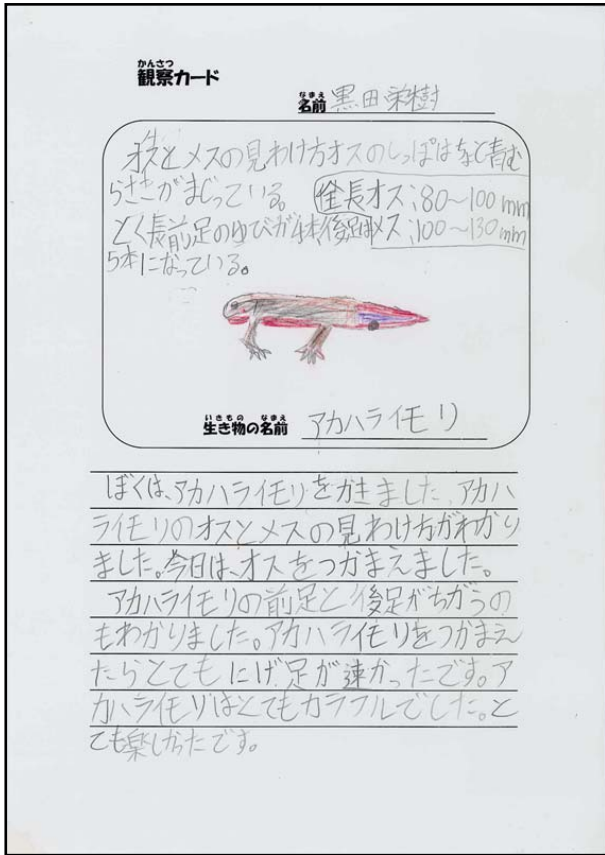 かんさつ
観察カード
なまえ
名前 黒田栄樹
オスとメスの見わけ方オスのしっぽは 青む
らさきがまじっている。 体長オス:80〜100mm
とく長前足のゆびが4本後足は メス:100〜130mm
5本になっている。
いきもの なまえ
生き物の名前 アカハライモリ
ぼくは、アカハライモリをかきました。アカハ
ライモリのオスとメスの見わけ方がわかり
ました。今日は、オスをつかまえました。
アカハライモリの前足と後足がちがうの
もわかりました。アカハライモリをつかまえ
たらとてもにげ足が速かったです。ア
カハライモリはとてもカラフルでした。と
ても楽しかったです。